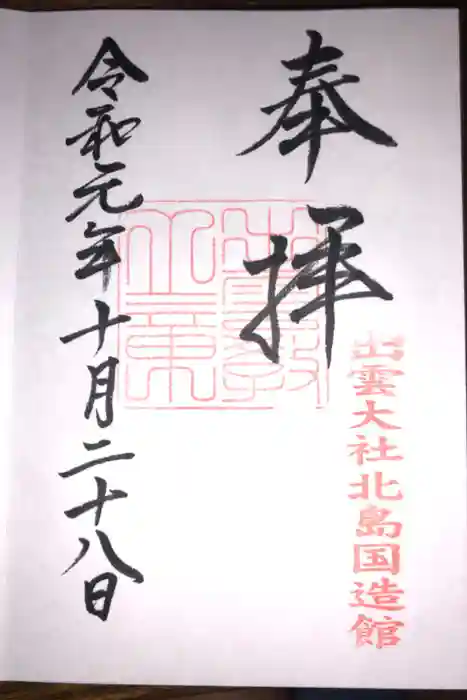 奉拝
出雲大社北島国造館
令和元年十月二十八日